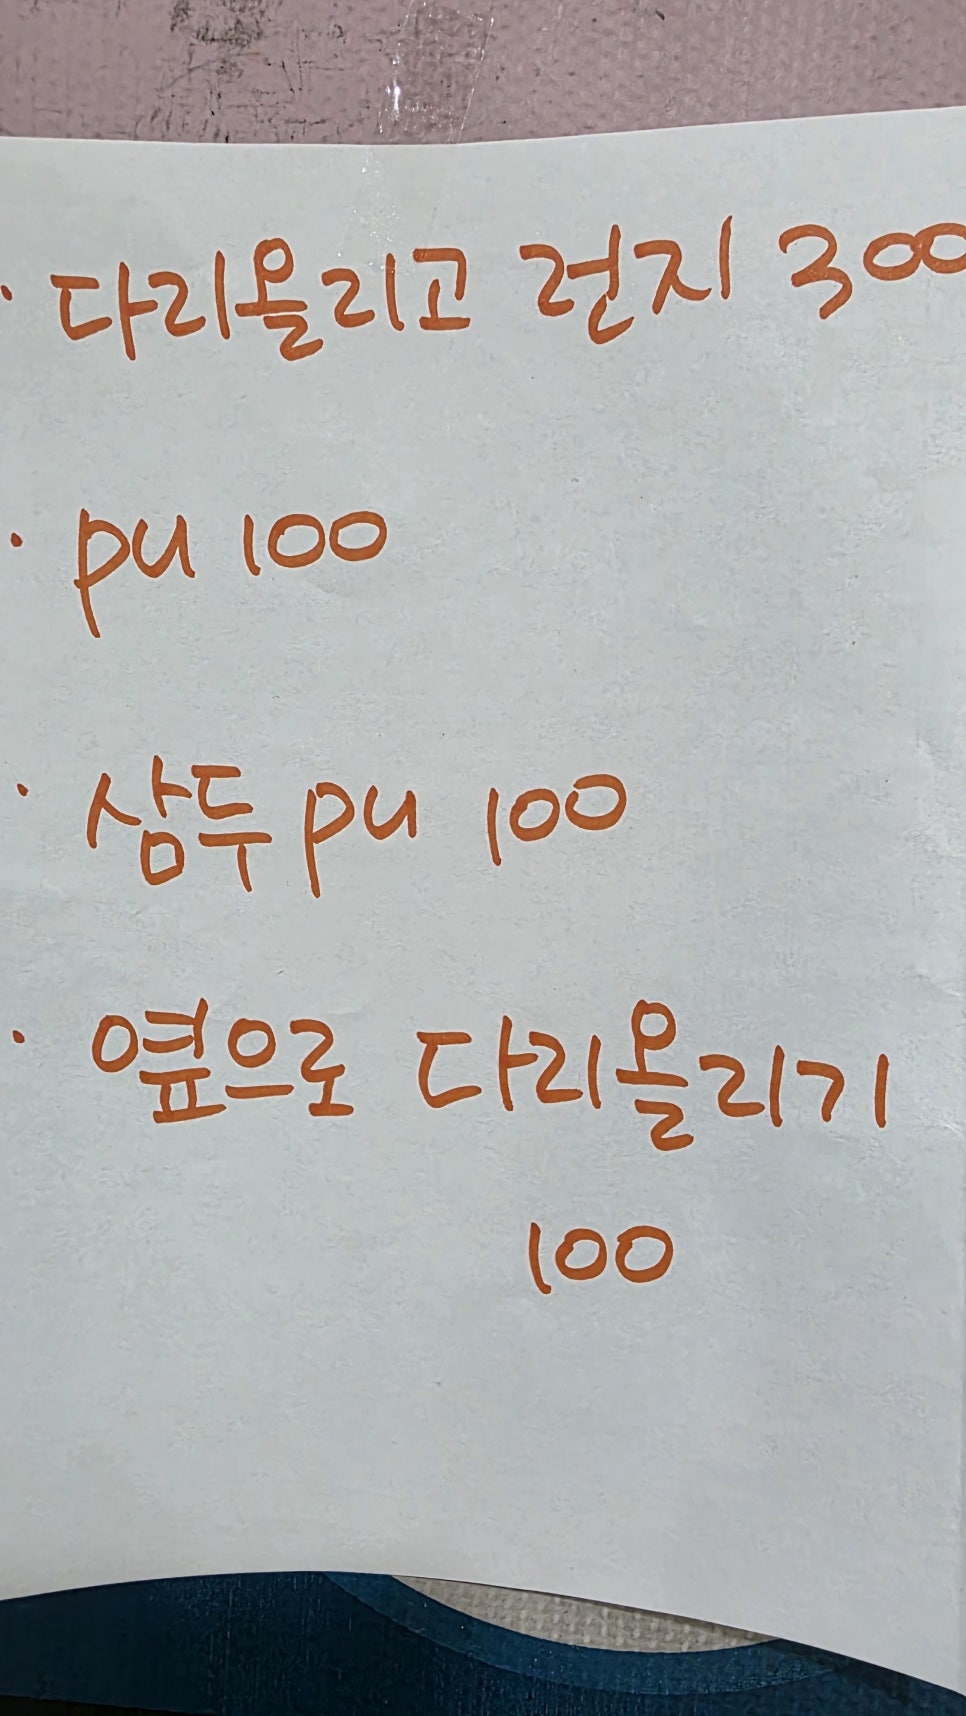 · 다리올리고 런지 300
· pu 100
· 삼두 pu 100
· 옆으로 다리올리기
100